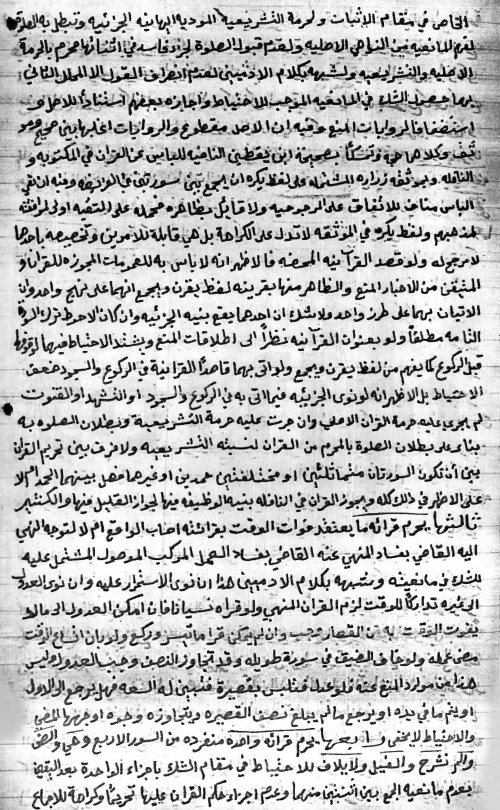 الخاص في مقام الإثبات ولحرمة التشريعية المودية الى نية الجزئية وتبطل به الصلوة
لفهم المانعية من النواهي الاصلية ولعدم قبول الصلوة لجزء فاسد في اثنائها محرم بالحرمة
الاصلية والتشريعية ولشبهه بكلام الادميين لعدم انصراف القول الا المحلل الثاني
بهما حصول الشك في المانعية الموجب للاحتياط واجازه بعضهم استنادا للاصل
استضعافا لروايات المنع وفيه ان الاصل مقطوع والروايات اغلبها بين صحيح
وتمسكا بصحيحة ابن يقطين النافية للباس عن القران في المكتوبة و
النافلة وبموثقة زرارة المشتملة على لفظ يكره ان يجمع بين سورتين في الفريضة وفيه ان نفي
الباس مناف للاتفاق على المرجوحية ولا قائل بظاهره فحمله على التقية اولى لموافقته
لمذهبهم ولفظ يكره في الموثقة لا تدل على الكراهة بل هي قابلة للامرين وتخصيصه باحدهما
لا مرجح له ولو قصد القرآنية المحضة فالاظهر انه لا باس به للعمومات المجوزة للقران و
المتيقن من الاخبار المنع والظاهر منها بقرينة لفظ يقرن ويجمع انهما على نهج واحد وان
الاتيان بهما على طرز واحد ولا شك ان احدهما يقع بنية الجزئية وان كان الاحوط ترك السورة
التامة مطلقا ولو بعنوان القرآنية نظرا الى اطلاقات المنع ويشتد الاحتياط فيهما لو قرءها
قبل الركوع كما يفهم من لفظ يقرن ويجمع ولو اتى بهما قاصدا للقرانية في الركوع والسجود ضعف
الاحتياط بل الاظهر انه لو نوى الجزئية فيما اتى به في الركوع والسجود او التشهد او القنوت
لم يجر عليه حرمة القران الاصلي وان جرت عليه حرمة التشريعية وبطلان الصلوة به
بناء على بطلان الصلوة بالمحرم من القران لنسبته التشريعية ولا فرق بين تحريم القران
بين أن تكون السورتان متماثلتين او مختلفتين حمدين او غيرهما فصل بينهما الحمد ام لا
على الاظهر في ذلك كله ويجوز القران في النافلة بنية الوظيفة منها لجواز القليل منها والكثير
ثالثها يحرم قرائة ما يعتقد فوات الوقت بقرائته اصاب الواقع ام لا لتوجه النهي
اليه القاضي بفساد المنهي عنه القاضي بفساد العمل المركب الموصول المشتمل عليه
للشك في مانعيته وشبهه بكلام الادميين هذا ان نوى الاستمرار عليه وان نوى العدول
الى غيره تداركا للوقت لزم القران المنهي ولو قراه نسيانا فان امكن العدول الى ما لا
يفوت الوقت به من القصار وجب وان لم يمكن قرا ما تيسر وركع ولو بان اتساع الوقت
مضى عمله ولو خاف الضيق في سورة طويلة وقد تجاوز النصف وجب العدول وليس
هذا من موارد المنع عنه فلو عدل فتلبس بقصيرة فتبين له السعة فهل يرجع الى الاول
او يتم ما في يده او يرجع ما لم يبلغ نصف القصيره ويتجاوزه وجوه اوجهها المضي
والاحتياط لا يخفى رابعها يحرم قرائة واحدة منفردة من السور الاربع وهي والضحى
والم نشرح والفيل ولايلاف للاحتياط في مقام الشك باجزاء الواحدة بعد اليقين
بعدم مانعية الجمع بين اثنتين منهما وعدم اجزاء حكم القران عليها تحريما وكراهة للاجماع